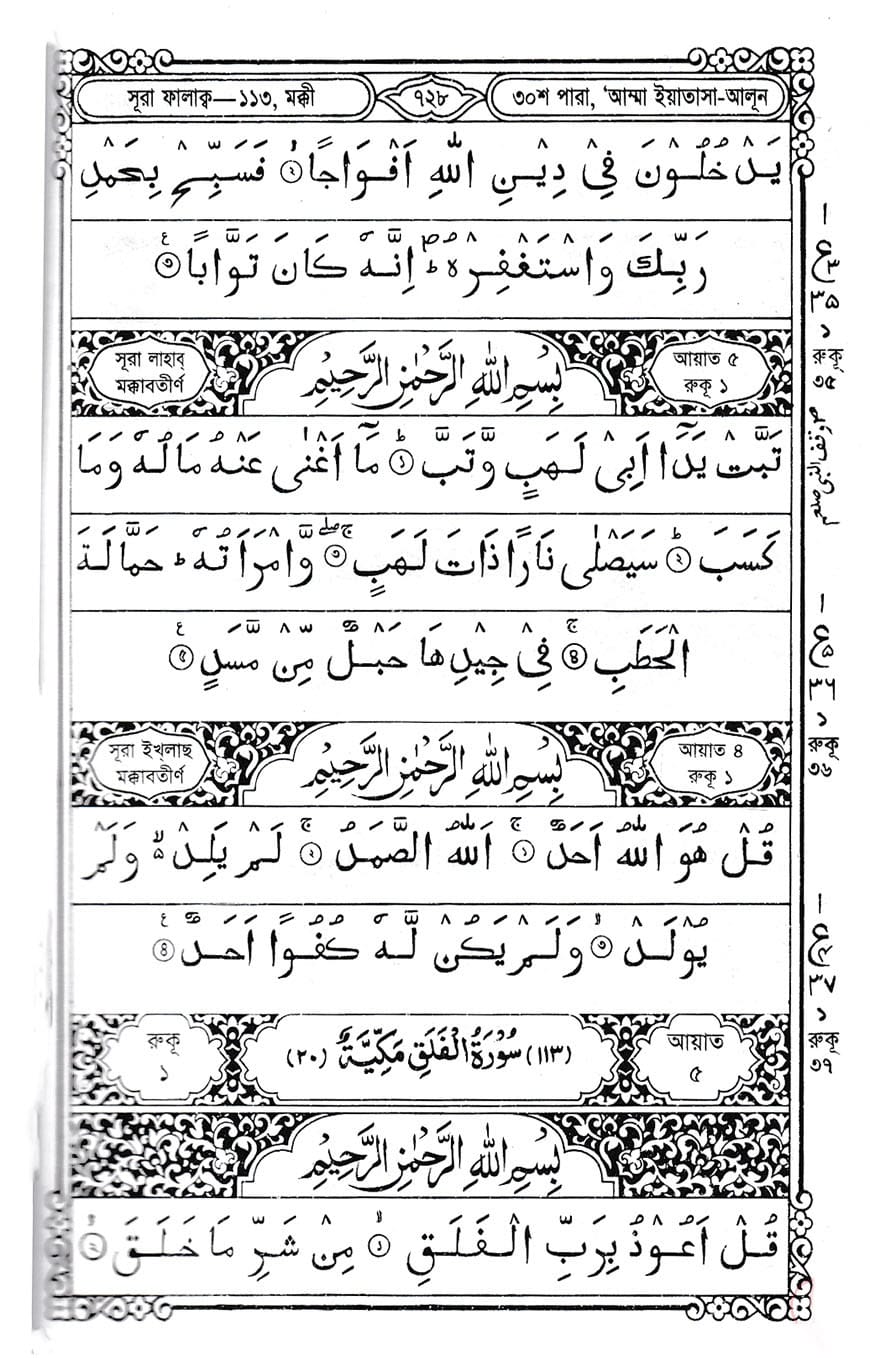 সূরা ফালাক্ব—১১৩, মক্কী ৭২৮ ৩০শ পারা, ‘আম্মা ইয়াতাসা-আলূন
يَدْخُلُوْنَ فِيْ دِيْنِ اللّٰهِ اَفْوَاجًا ২ فَسَبِّحْ بِحَمْدِ
رَبِّكَ وَاسْتَغْفِرْهُ ؕ اِنَّهٗ كَانَ تَوَّابًا ৩
সূরা লাহাব্ মক্কাবতীর্ণ
بِسْمِ اللّٰهِ الرَّحْمٰنِ الرَّحِيْمِ
আয়াত ৫ রুকূ ১
تَبَّتْ يَدَآ اَبِيْ لَهَبٍ وَّتَبَّ ১ مَآ اَغْنٰى عَنْهُ مَالُهٗ وَمَا
كَسَبَ ২ سَيَصْلٰى نَارًا ذَاتَ لَهَبٍ ৩ وَّامْرَاَتُهٗ ؕ حَمَّالَةَ
الْحَطَبِ ৪ فِيْ جِيْدِهَا حَبْلٌ مِّنْ مَّسَدٍ ৫
সূরা ইখ্লাছ্ মক্কাবতীর্ণ
بِسْمِ اللّٰهِ الرَّحْمٰنِ الرَّحِيْمِ
আয়াত ৪ রুকূ ১
قُلْ هُوَ اللّٰهُ اَحَدٌ ১ اَللّٰهُ الصَّمَدُ ২ لَمْ يَلِدْ ۙ وَلَمْ
يُوْلَدْ ৩ وَلَمْ يَكُنْ لَّهٗ كُفُوًا اَحَدٌ ৪
রুকূ ১
(١١٣) سُوْرَةُ الْفَلَقِ مَكِّيَّةٌ (٢٠)
আয়াত ৫
بِسْمِ اللّٰهِ الرَّحْمٰنِ الرَّحِيْمِ
قُلْ اَعُوْذُ بِرَبِّ الْفَلَقِ ১ مِنْ شَرِّ مَا خَلَقَ ২
রুকূ
৩৫
রুকূ
৩৬
রুকূ
৩৭